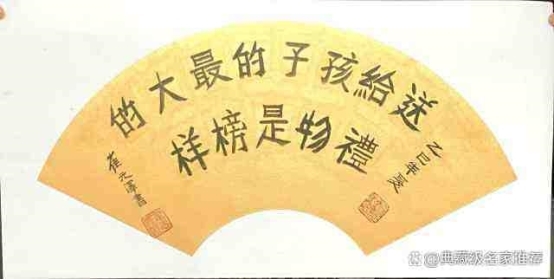 送給孩子的最大的
禮物是榜样
乙巳年夏
崔書
@典藏级名家推荐